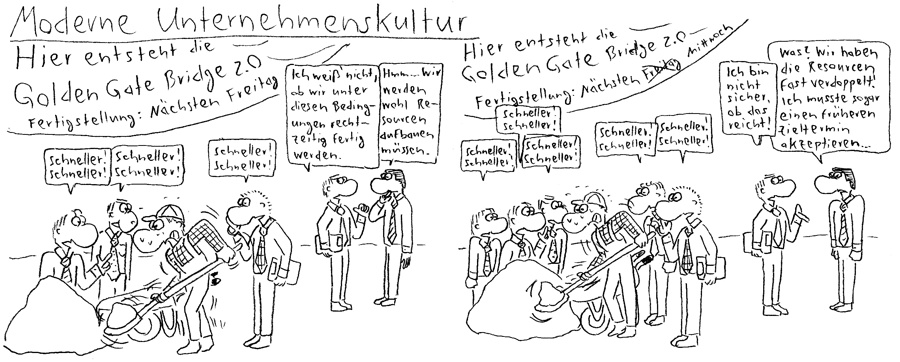 Moderne Unternehmenskultur
Hier entsteht die
Golden Gate Bridge 2.0
Fertigstellung: Nächsten Freitag
Ich weiß nicht,
ob wir unter
diesen Beding-
ungen recht-
zeitig fertig
werden.
Hmm... Wir
werden
wohl Re-
sourcen
aufbauen
müssen.
Schneller!
Schneller!
Schneller!
Schneller!
Schneller!
Schneller!
Hier entsteht die
Golden Gate Bridge 2.0
Fertigstellung: Nächsten Freitag Mittwoch
Ich bin
nicht
sicher,
ob das
reicht!
Was? Wir haben
die Resourcen
fast verdoppelt!
Ich musste sogar
einen früheren
Zieltermin
akzeptieren...
Schneller!
Schneller!
Schneller!
Schneller!
Schneller!
Schneller!
Schneller!
Schneller!
Schneller!
Schneller!